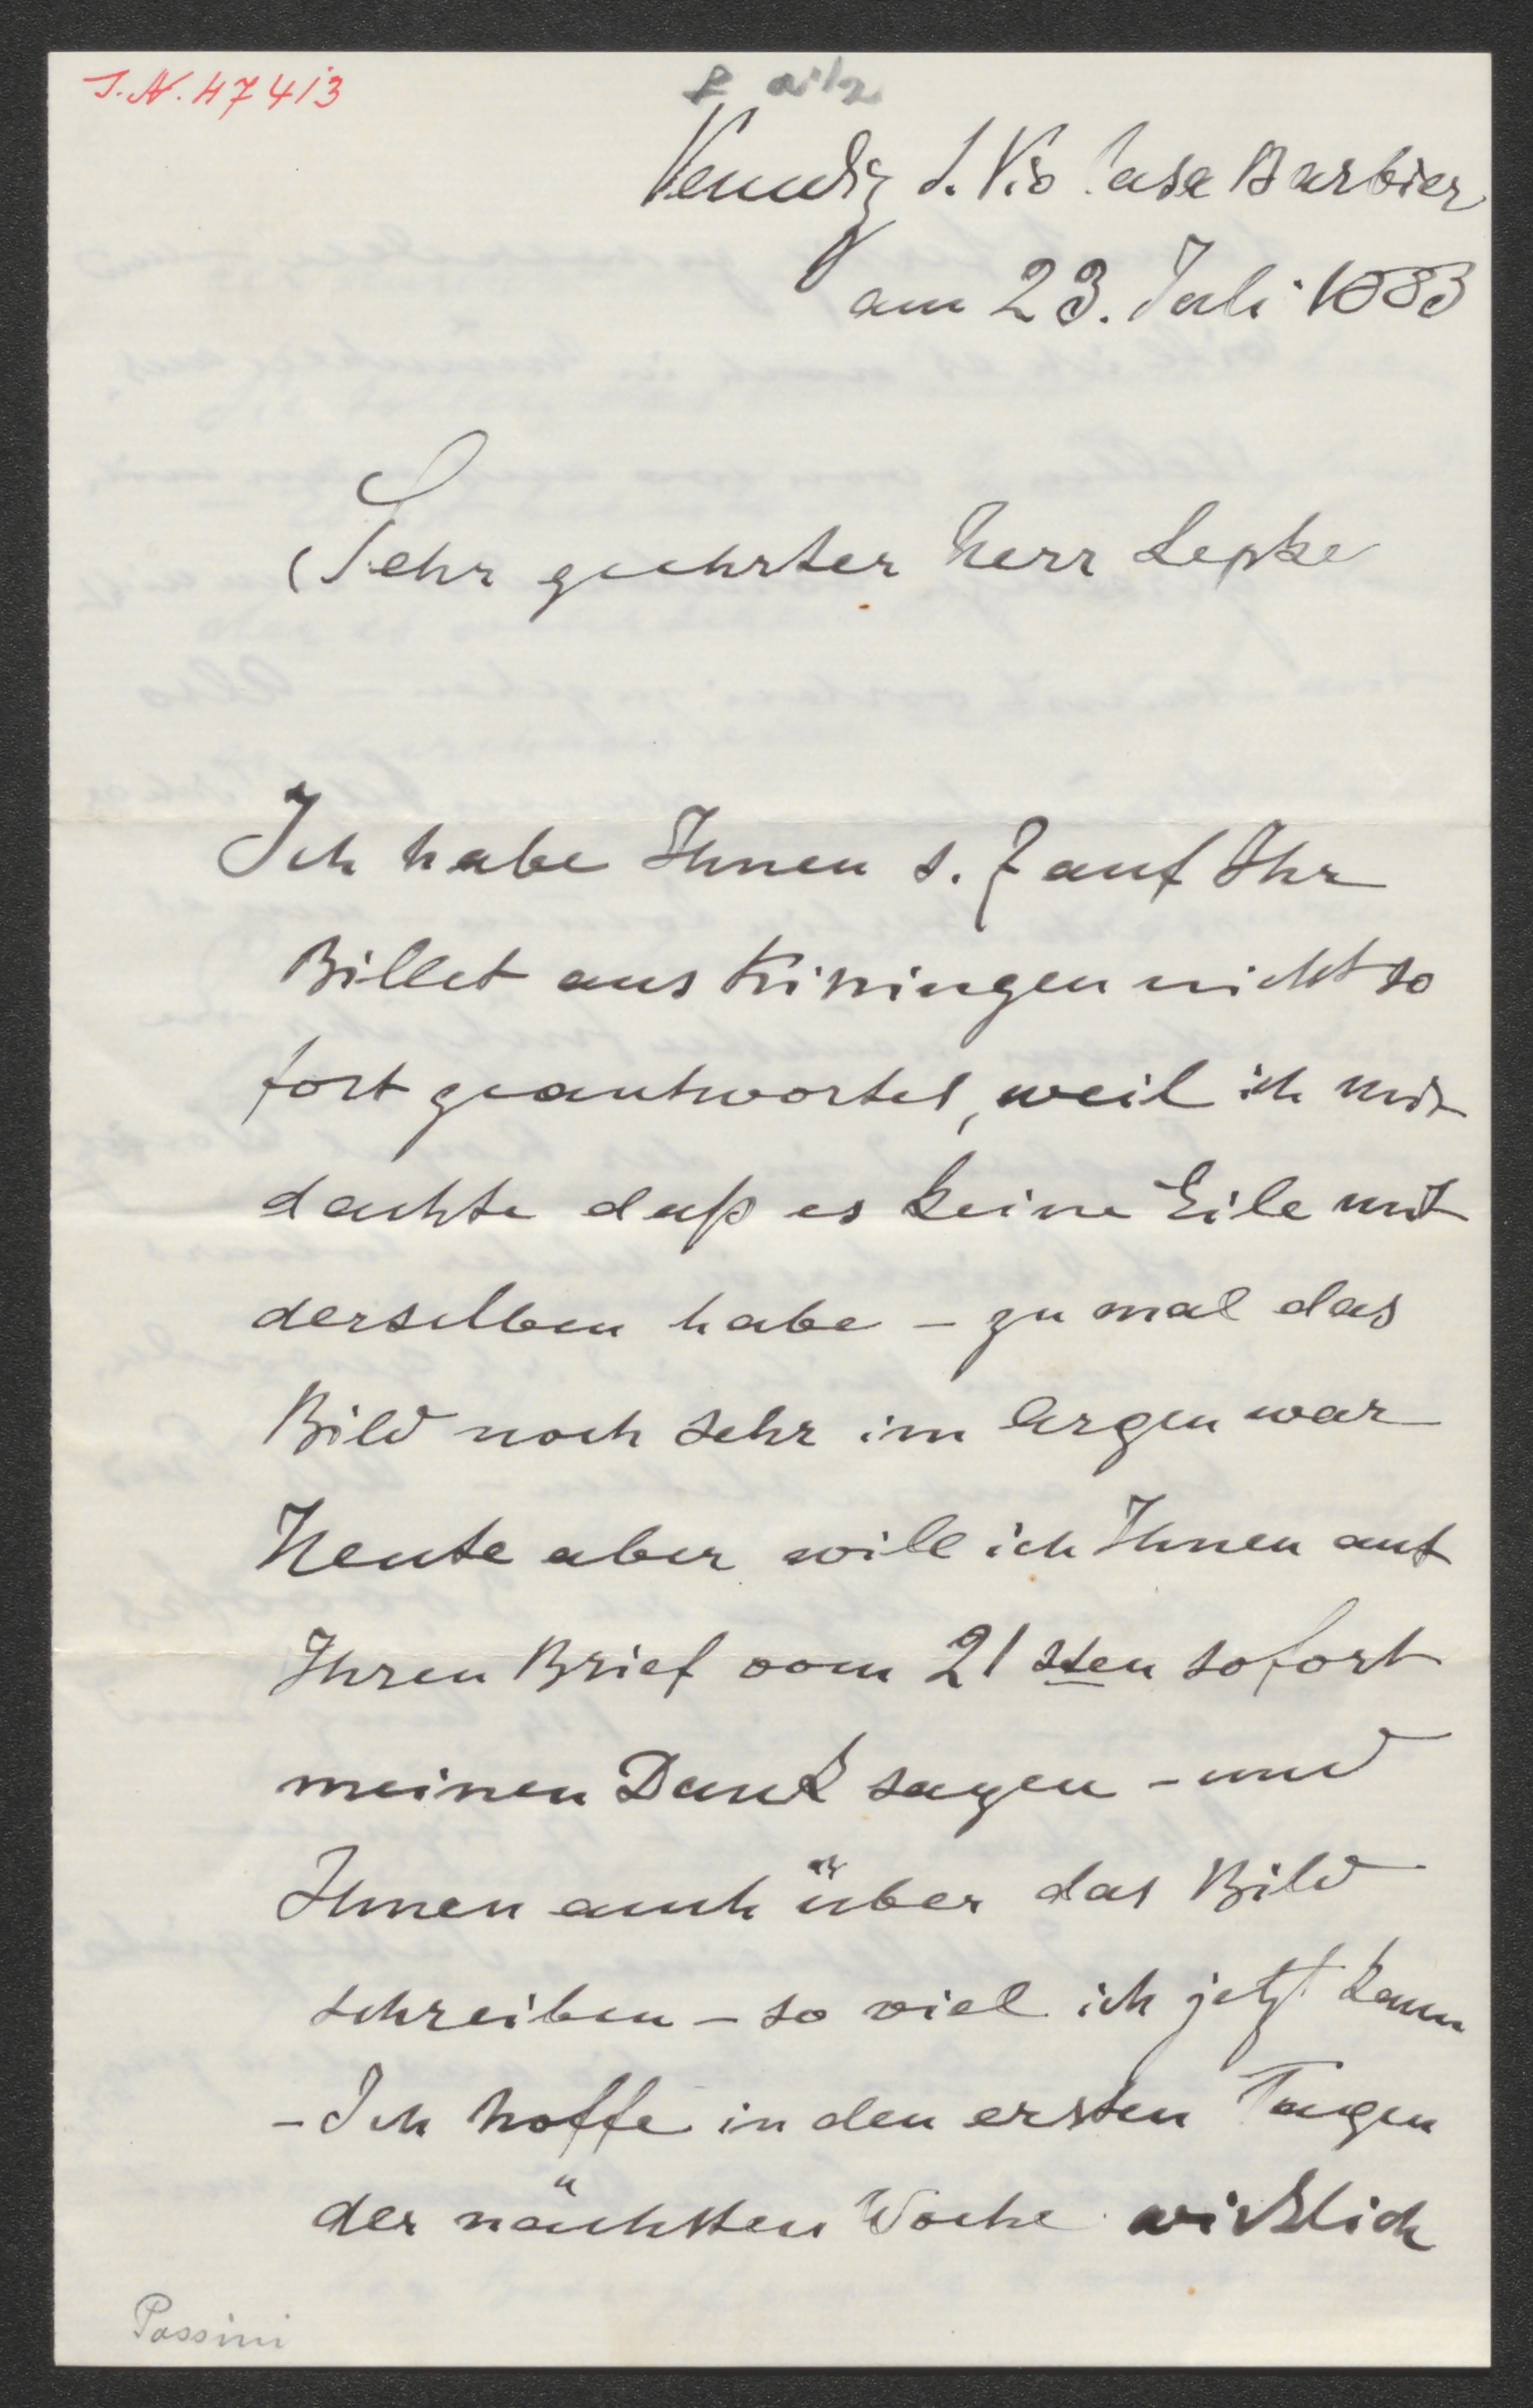 I.N. 47413
Venedig S. Vio Casa Barbier
am 23. Juli 1883
Sehr geehrter Herr Lepke
Ich habe Ihnen s. Z auf Ihr
Billet aus Kissingen nicht so
fort geantwortet, weil ich mir
dachte daß es keine Eile mit
derselben habe – zu mal das
Bild noch sehr im Argen war
Heute aber will ich Ihnen auf
Ihren Brief vom 21 sten sofort
meinen Dank sagen – und
Ihnen auch über das Bild
schreiben – so viel ich jetzt kann
– Ich hoffe in den ersten Tagen
der nächsten Woche wirklich
Passini